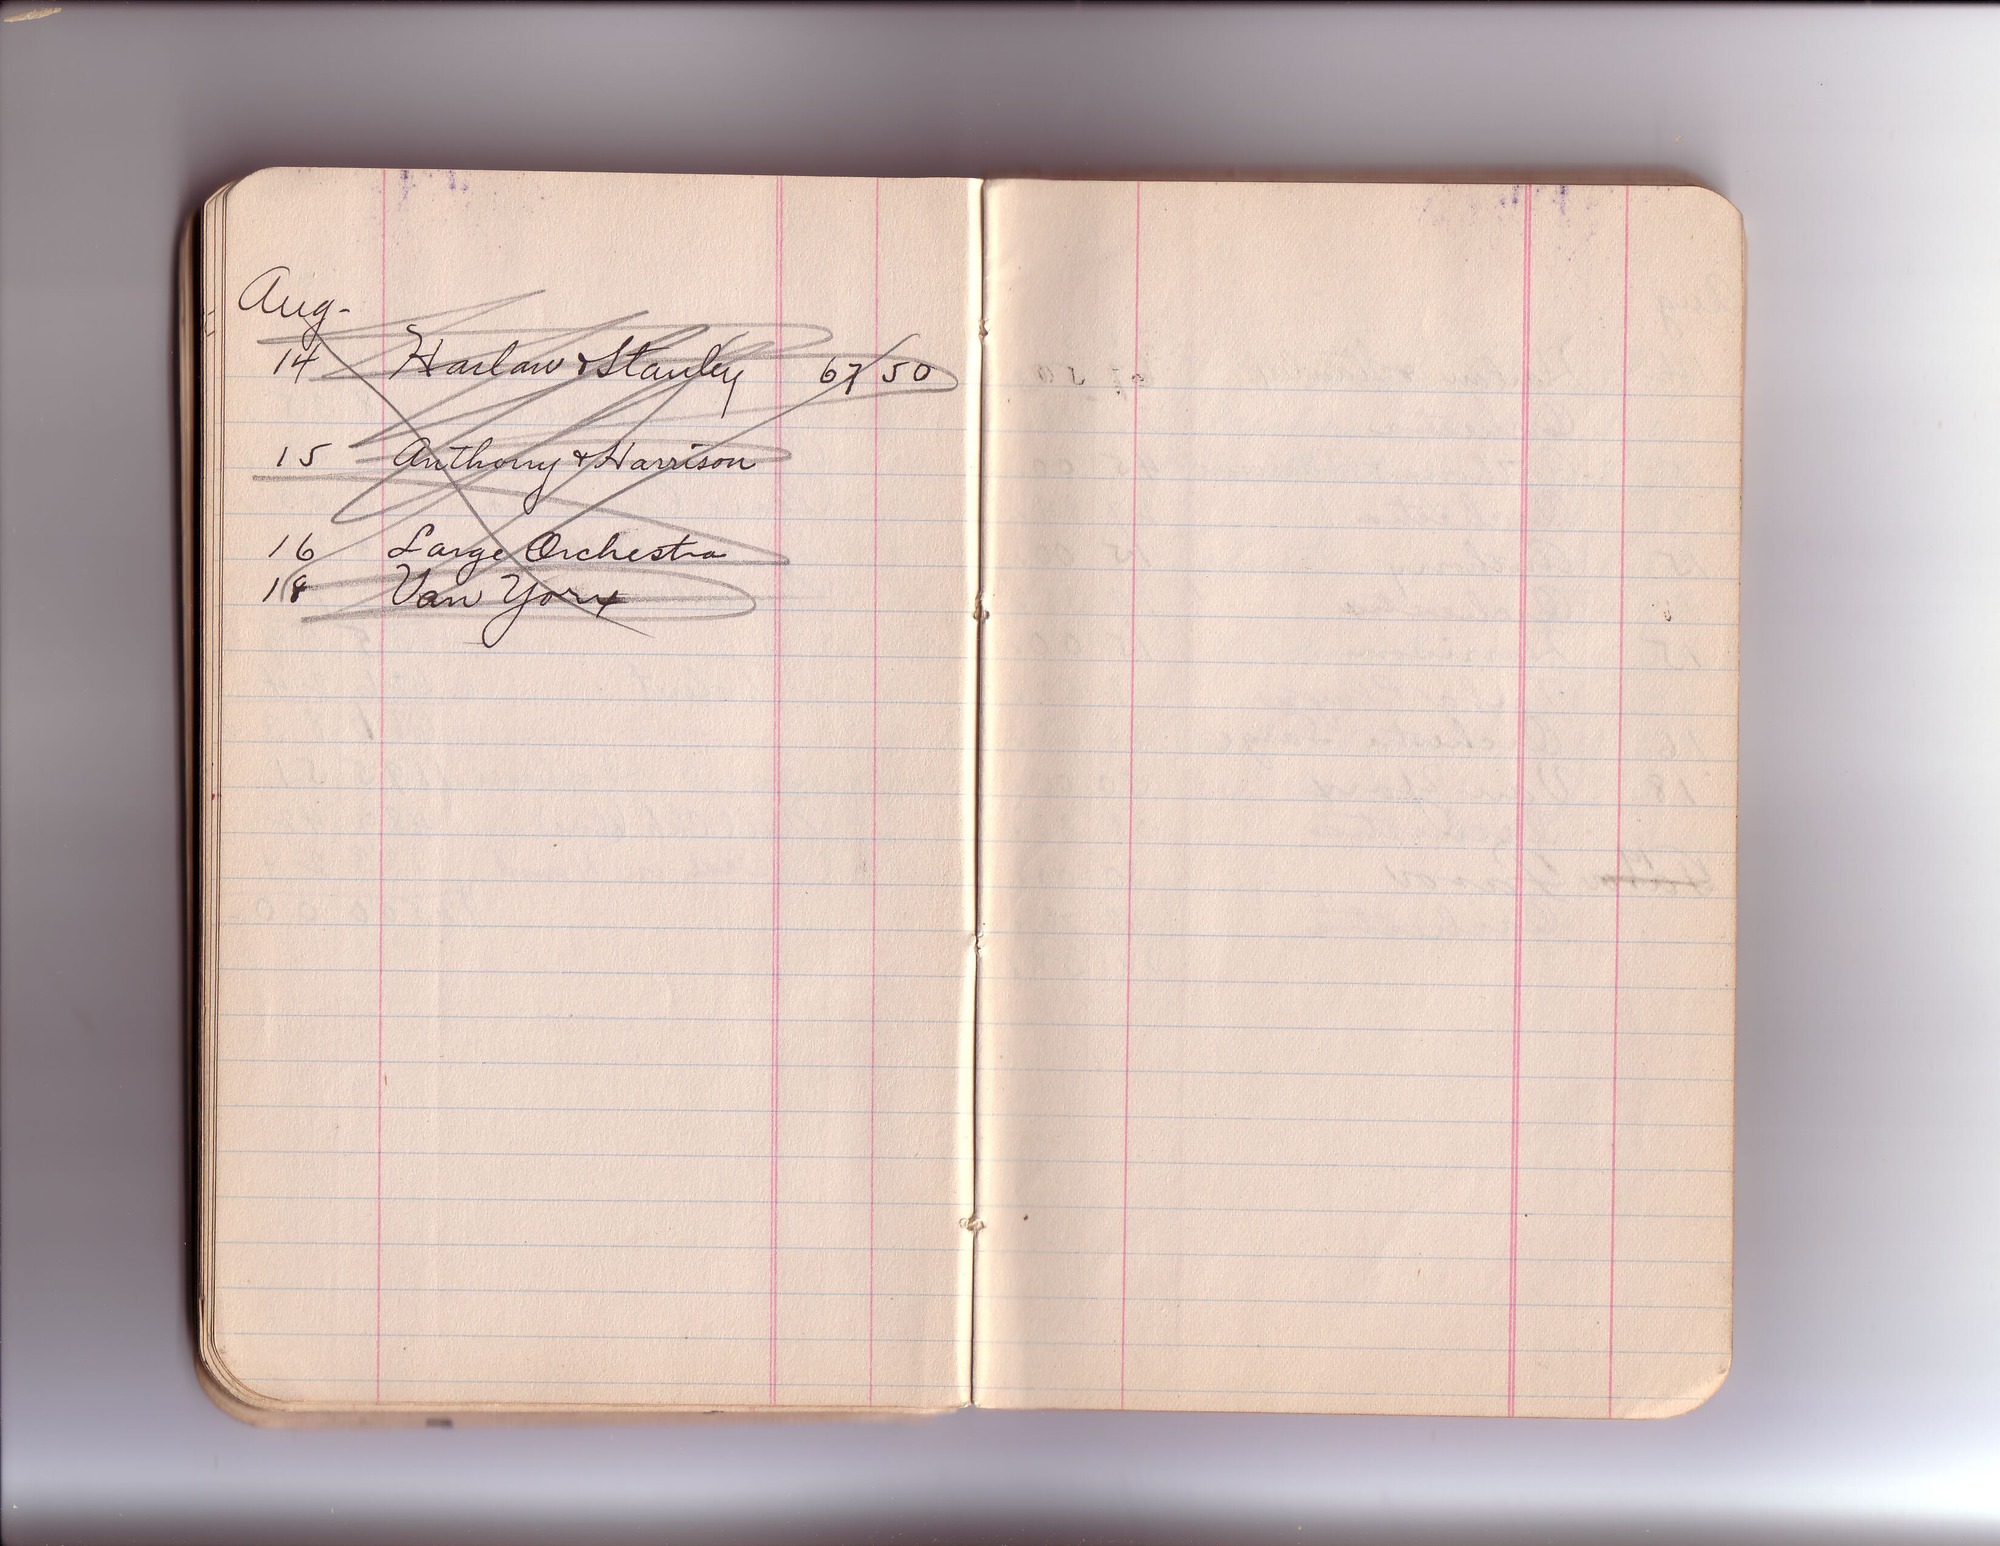 Aug-
14 Harlow & Stanley 67/50
15 Anthony & Harrison
16 Large Orchestra
18 Van York